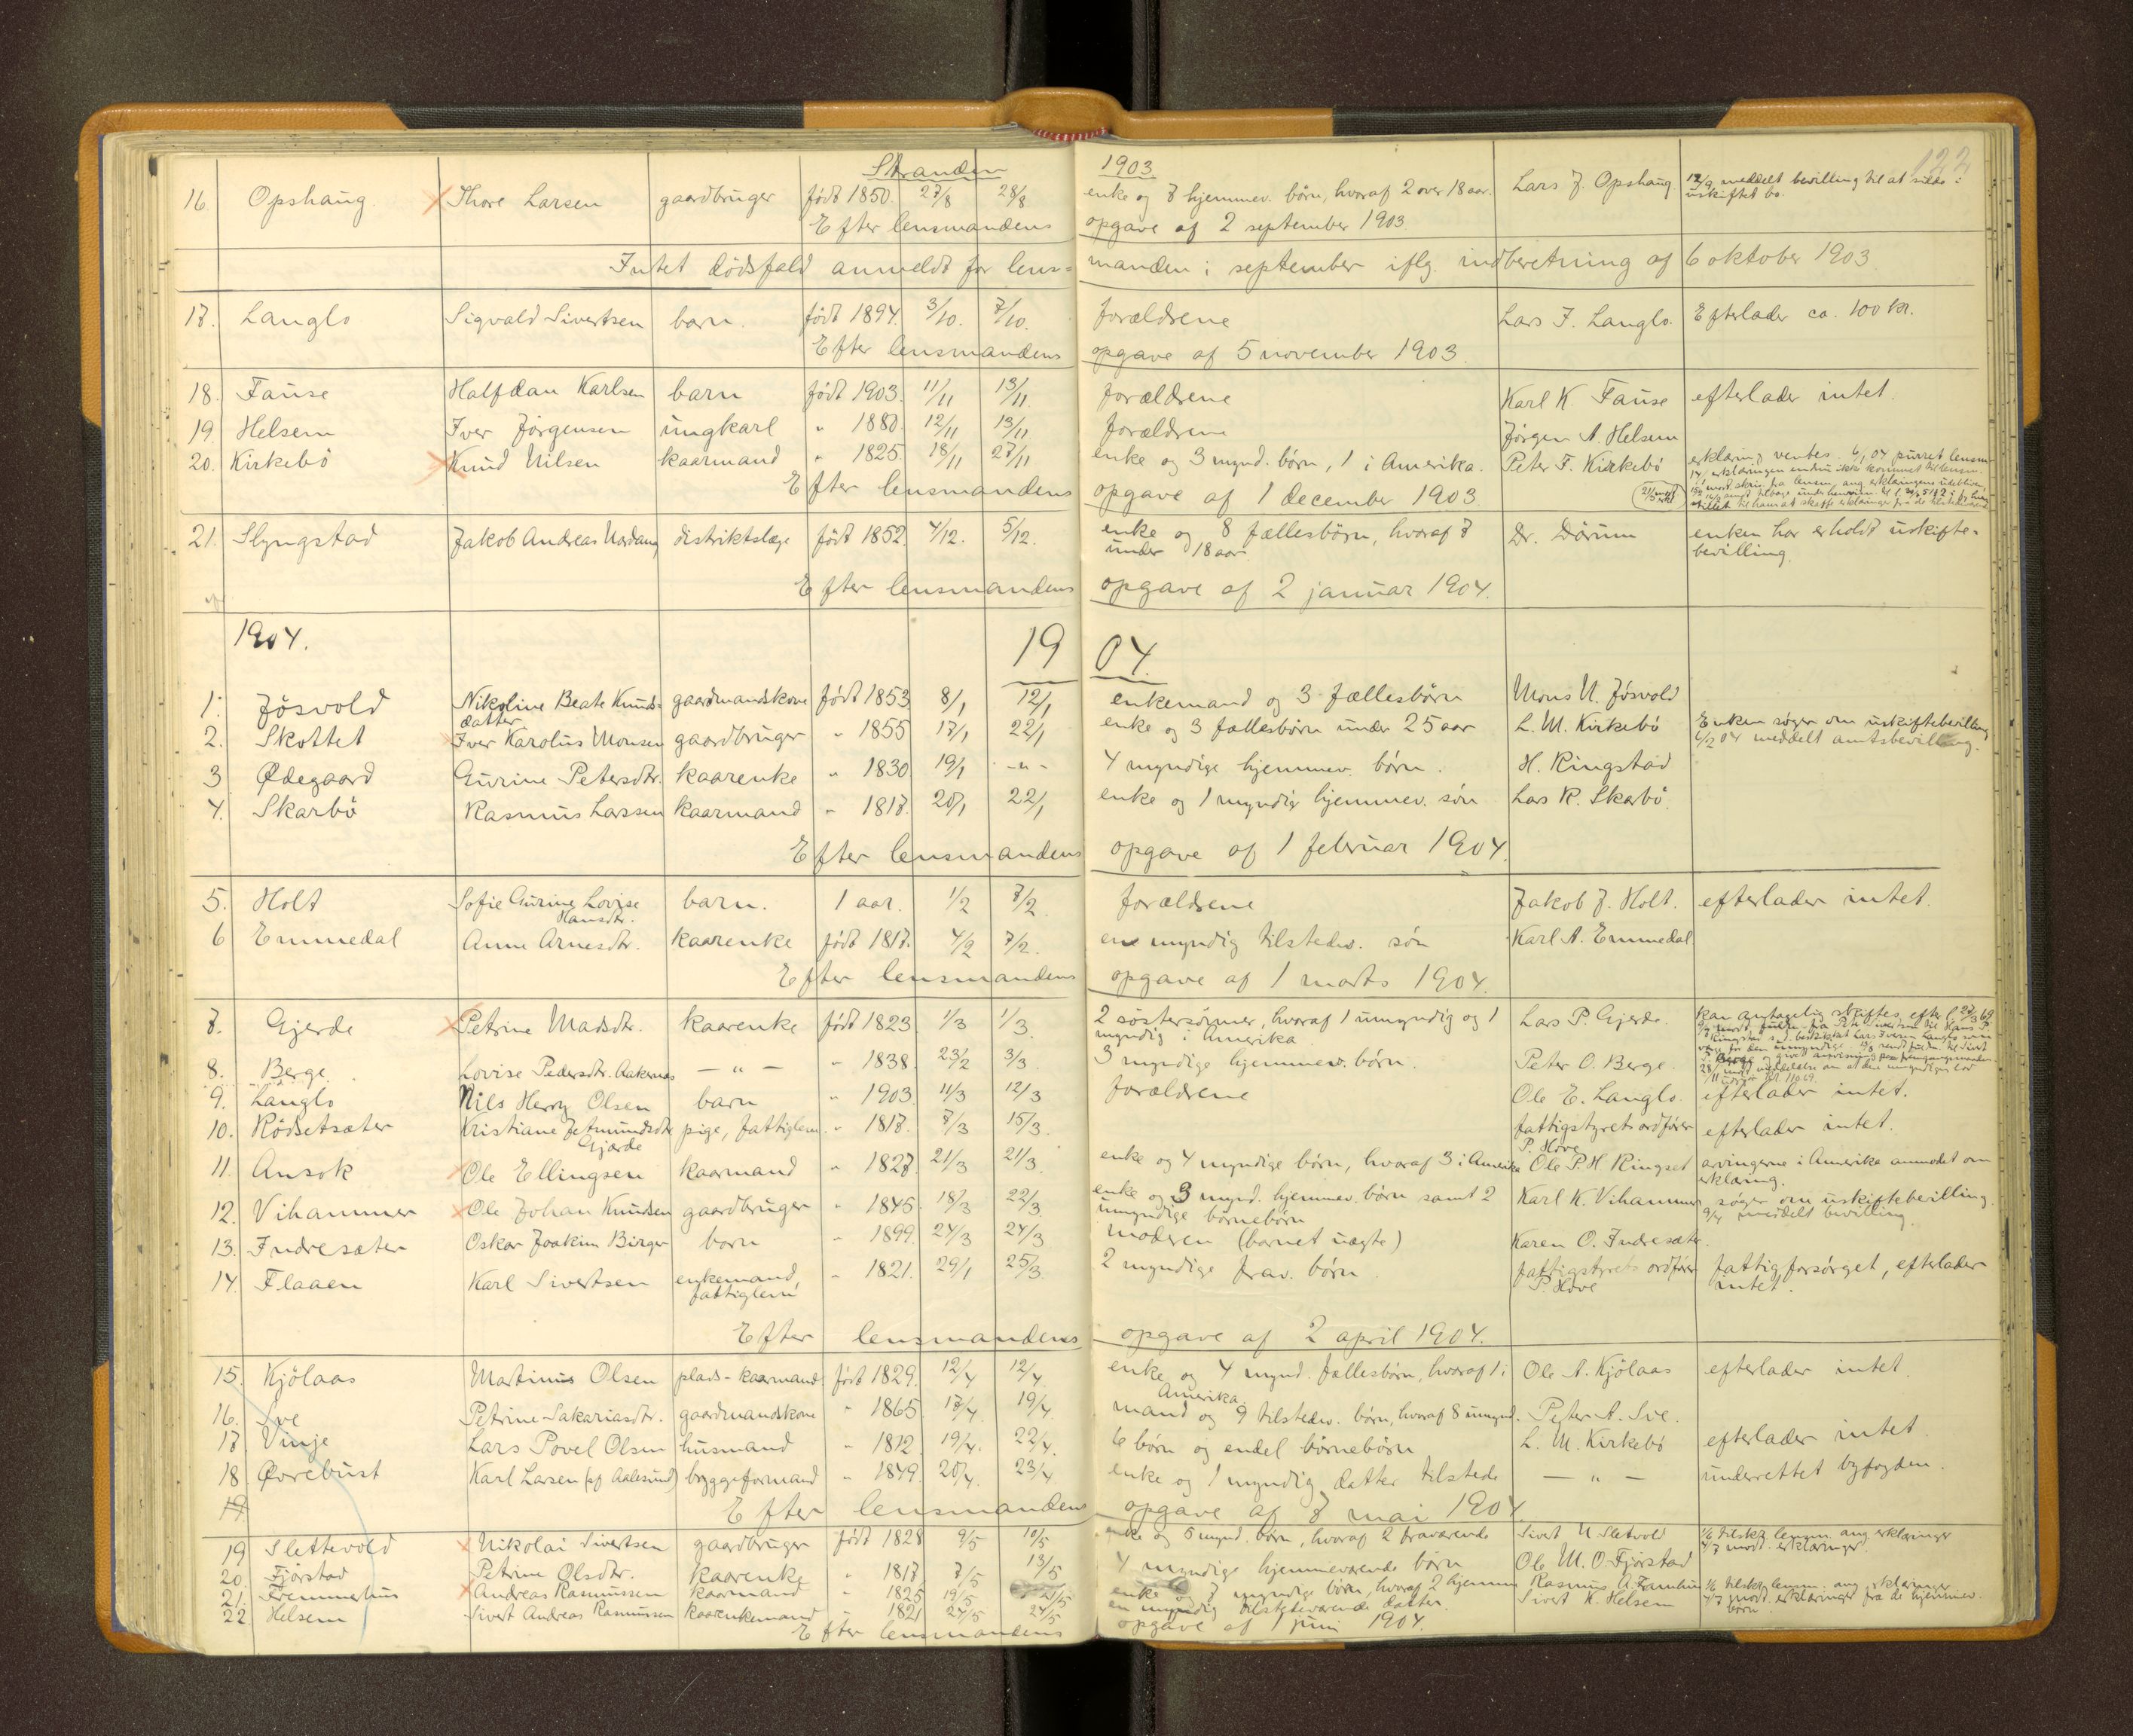 Stranden 1903. 122
16. Opshaug. Thore Larsen gaardbruger født 1850. 27/8 28/8 enke og 7 hjemmev. børn, hvoraf 2 over 18 aar. Lars J. Opshaug 12/9 meddelt bevilling til at sidde i
uskiftet bo.
Efter lensmandens opgave af 2 september 1903
Intet dødsfald anmeldt for lens= manden i september iflg. indberetning af 6 oktober 1903
17. Langlo Sigvald Sivertsen barn. født 1894. 3/10. 7/10. forældrene Lars J. Langlo. Efterlader ca. 100 kr.
Efter lensmandens opgave af 5 november 1903.
18. Fause Halfdan Karlsen barn født 1903. 11/11 13/11. forældrene Karl K Fause efterlader intet.
19 Helsem Iver Jørgensen ungkarl " 1880. 12/11 13/11 forældrene Jørgen A. Helsem
20. Kirkebö Knud Nilsen kaarmand " 1825. 18/11 27/11 enke og 3 mynd. børn, 1 i Amerika. Peter F. Kirkebö erklæring ventes. 6/1 04 purret lensm.
14/1 erklæringen endnu ikke kommet til lensm.
Efter lensmandens opgave af 1 december 1903.
21. Slyngstad Jakob Andreas Nordang distriktslæge født 1852. 4/12. 5/12. enke og 8 fællesbørn, hvoraf 7 Dr. Dörum enken har erholdt uskifte=
under 18 aar. bevilling.
Efter lensmandens opgave af 2 januar 1904.
1904. 1904.
1. Jösvold Nikoline Beate Knuds= gaardmandskone født 1853 8/1 12/1 enkemand og 3 fællesbörn Mons N. Jösvold
datter
2. Skottet Iver Karolus Monsen gaardbruger " 1855 17/1 22/1 enke og 3 fællesbörn under 25 aar L. M. Kirkebö Enken søger om uskiftebevilling
6/2 04 meddelt amtsbevilling.
3 Ødegaard Gurine Petersdtr. kaarenke " 1830 19/1 -"- 4 myndige hjemmev. børn. H. Ringstad
4. Skarbö Rasmus Larssen kaarmand " 1817. 20/1 22/1 enke og 1 myndig hjemmev. søn Lars R. Skarbö.
Efter lensmandens opgave af 1 februar 1904.
5. Holt Sofie Gurine Lovise barn. 1 aar. 1/2 7/2 forældrene Jakob J. Holt. efterlader intet.
Hansdtr.
6 Emmedal Anne Arnesdtr. kaarenke født 1817. 4/2 7/2. en myndig tilstedev. søn Karl A. Emmedal
Efter lensmandens opgave af 1 marts 1904.
7. Gjerde Petrine Madsdtr. kaarenke født 1823 1/3 1/3. 2 søstersønner, hvoraf 1 umyndig og 1 Lars P. Gjerde. kan antagelig skiftes efter
myndig i Amerika
8. Berge. Lovise Pedersdtr. Aakernes — " — " 1838. 23/2 3/3 3 myndige hjemmev. børn. Peter O. Berge.
9. Langlo Nils Herry Olsen barn " 1903 11/3 12/3 forældrene Ole E. Langlo. efterlader intet.
10. Rödsetsæter Kristiane Jetmundsdtr pige, fattiglem. " 1818. 7/3 15/3. fattigstyrets ordfører efterlader intet.
Gjerde P. Hove
11. Ansok Ole Ellingsen kaarmand " 1827 21/3 21/3 enke og 4 myndige børn, hvoraf 3 i Amerika Ole P. H Ringset arvingerne i Amerika anmodet om
erklæring.
12. Vihammer Ole Johan Knudsen gaardbruger " 1845 18/3 22/3 enke og 3 mynd. hjemmev. børn samt 2 Karl K. Vihammer søger om uskiftebevilling.
umyndige børnebørn 9/4 meddelt bevilling.
13. Indresæter Oskar Joakim Birger barn " 1899. 24/3 24/3 moderen (barnet uægte) Karen O. Indresæter.
14. Flaaen Karl Sivertsen enkemand, " 1821. 29/1 25/3. 2 myndige frav. børn. fattigstyrets ordfører fattigforsørget, efterlader
fattiglem P. Hove intet.
Efter lensmandens opgave af 2 april 1904.
15. Kjölaas Martinus Olsen plads-kaarmand født 1829. 12/4 12/4. enke og 4 mynd. fællesbörn, hvoraf 1 i Ole A. Kjölaas efterlader intet.
Amerika.
16. Sve Petrine Sakariasdtr. gaardmandskone " 1865 17/4 19/4. mand og 9 tilstedev. børn, hvoraf 8 umynd. Peter A. Sve.
17. Vinje Lars Povel Olsen husmand " 1812. 19/4. 22/4. 6 børn og endel børnebørn L. M. Kirkebö efterlader intet.
18 Øvrebust Karl Larsen (af Aalesund) bryggeformand " 1849. 20/4 23/4. enke og 1 myndig datter tilstede — " — underrettet byfogden.
19 Efter lensmandens opgave af 7 mai 1904
19 Slettevold Nikolai Sivertsen gaardbruger født 1828 9/5 10/5 enke og 5 mynd. børn, hvoraf 2 fraværende Sivert N Sletvold 1/6 tilskr. lensm. ang. erklæringer
4/7 modt. erklæringer.
20 Fjörstad Petrine Olsdtr. kaarenke " 1817 7/5 13/5 4 myndige hjemmeværende børn Ole M. O. Fjörstad
21. Fremmerhus Andreas Rasmussen kaarmand " 1825 19/5 21/5 enke og 7 myndige børn, hvoraf 2 hjemme Rasmus A. 1/6 tilskr. lensm. ang. erklæringer
4/7 modt. erklæringer fra de hjemmev.
børn.
22 Helsem Sivert Andreas Rasmussen kaarenkemand " 1821 24/5 24/5 en myndig tilstedeværende datter. Sivert K. Helsem
Efter lensmandens opgave af 1 juni 1904.